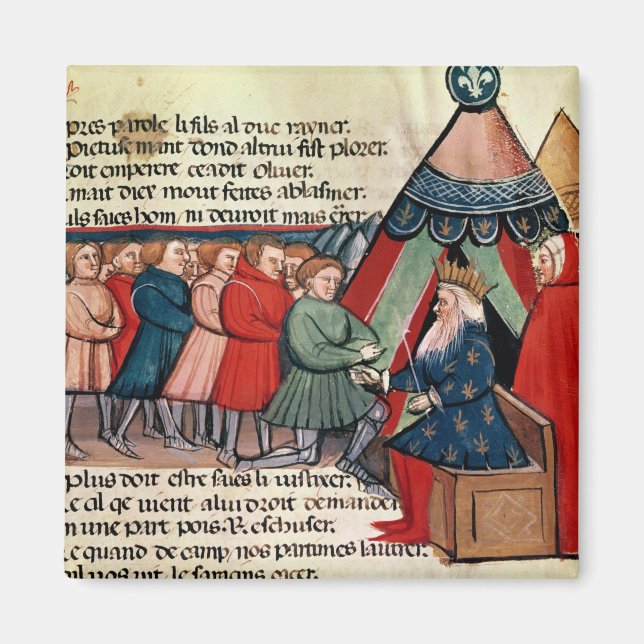 pres parole li fils al duc rayner.
Pietusemant dond altrui fist plorer.
Droit emperere ce a dit oliuer.
mait diex mout feites a blasmer.
uls saies hom ni deuroit mais
plus doit estre saies li iustixer.
Le cil qe uient a lui droit demander
n une part pois. R. eschuser.
Le quand de camp nos partimes lautrer.
nos uit le